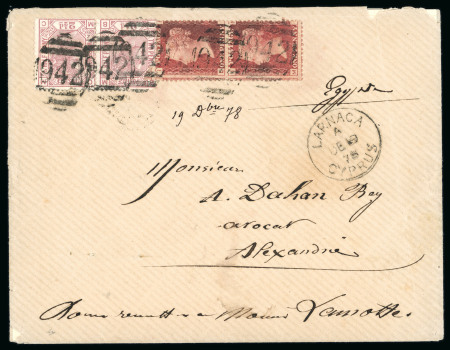 942 942
Egypte
19 Dbre 78
LARNACA
A
DE 19
78
CYPRUS
Monsieur
A. Dahan Bey
avocat
Alexandrie
Pour remettre a Lamotte